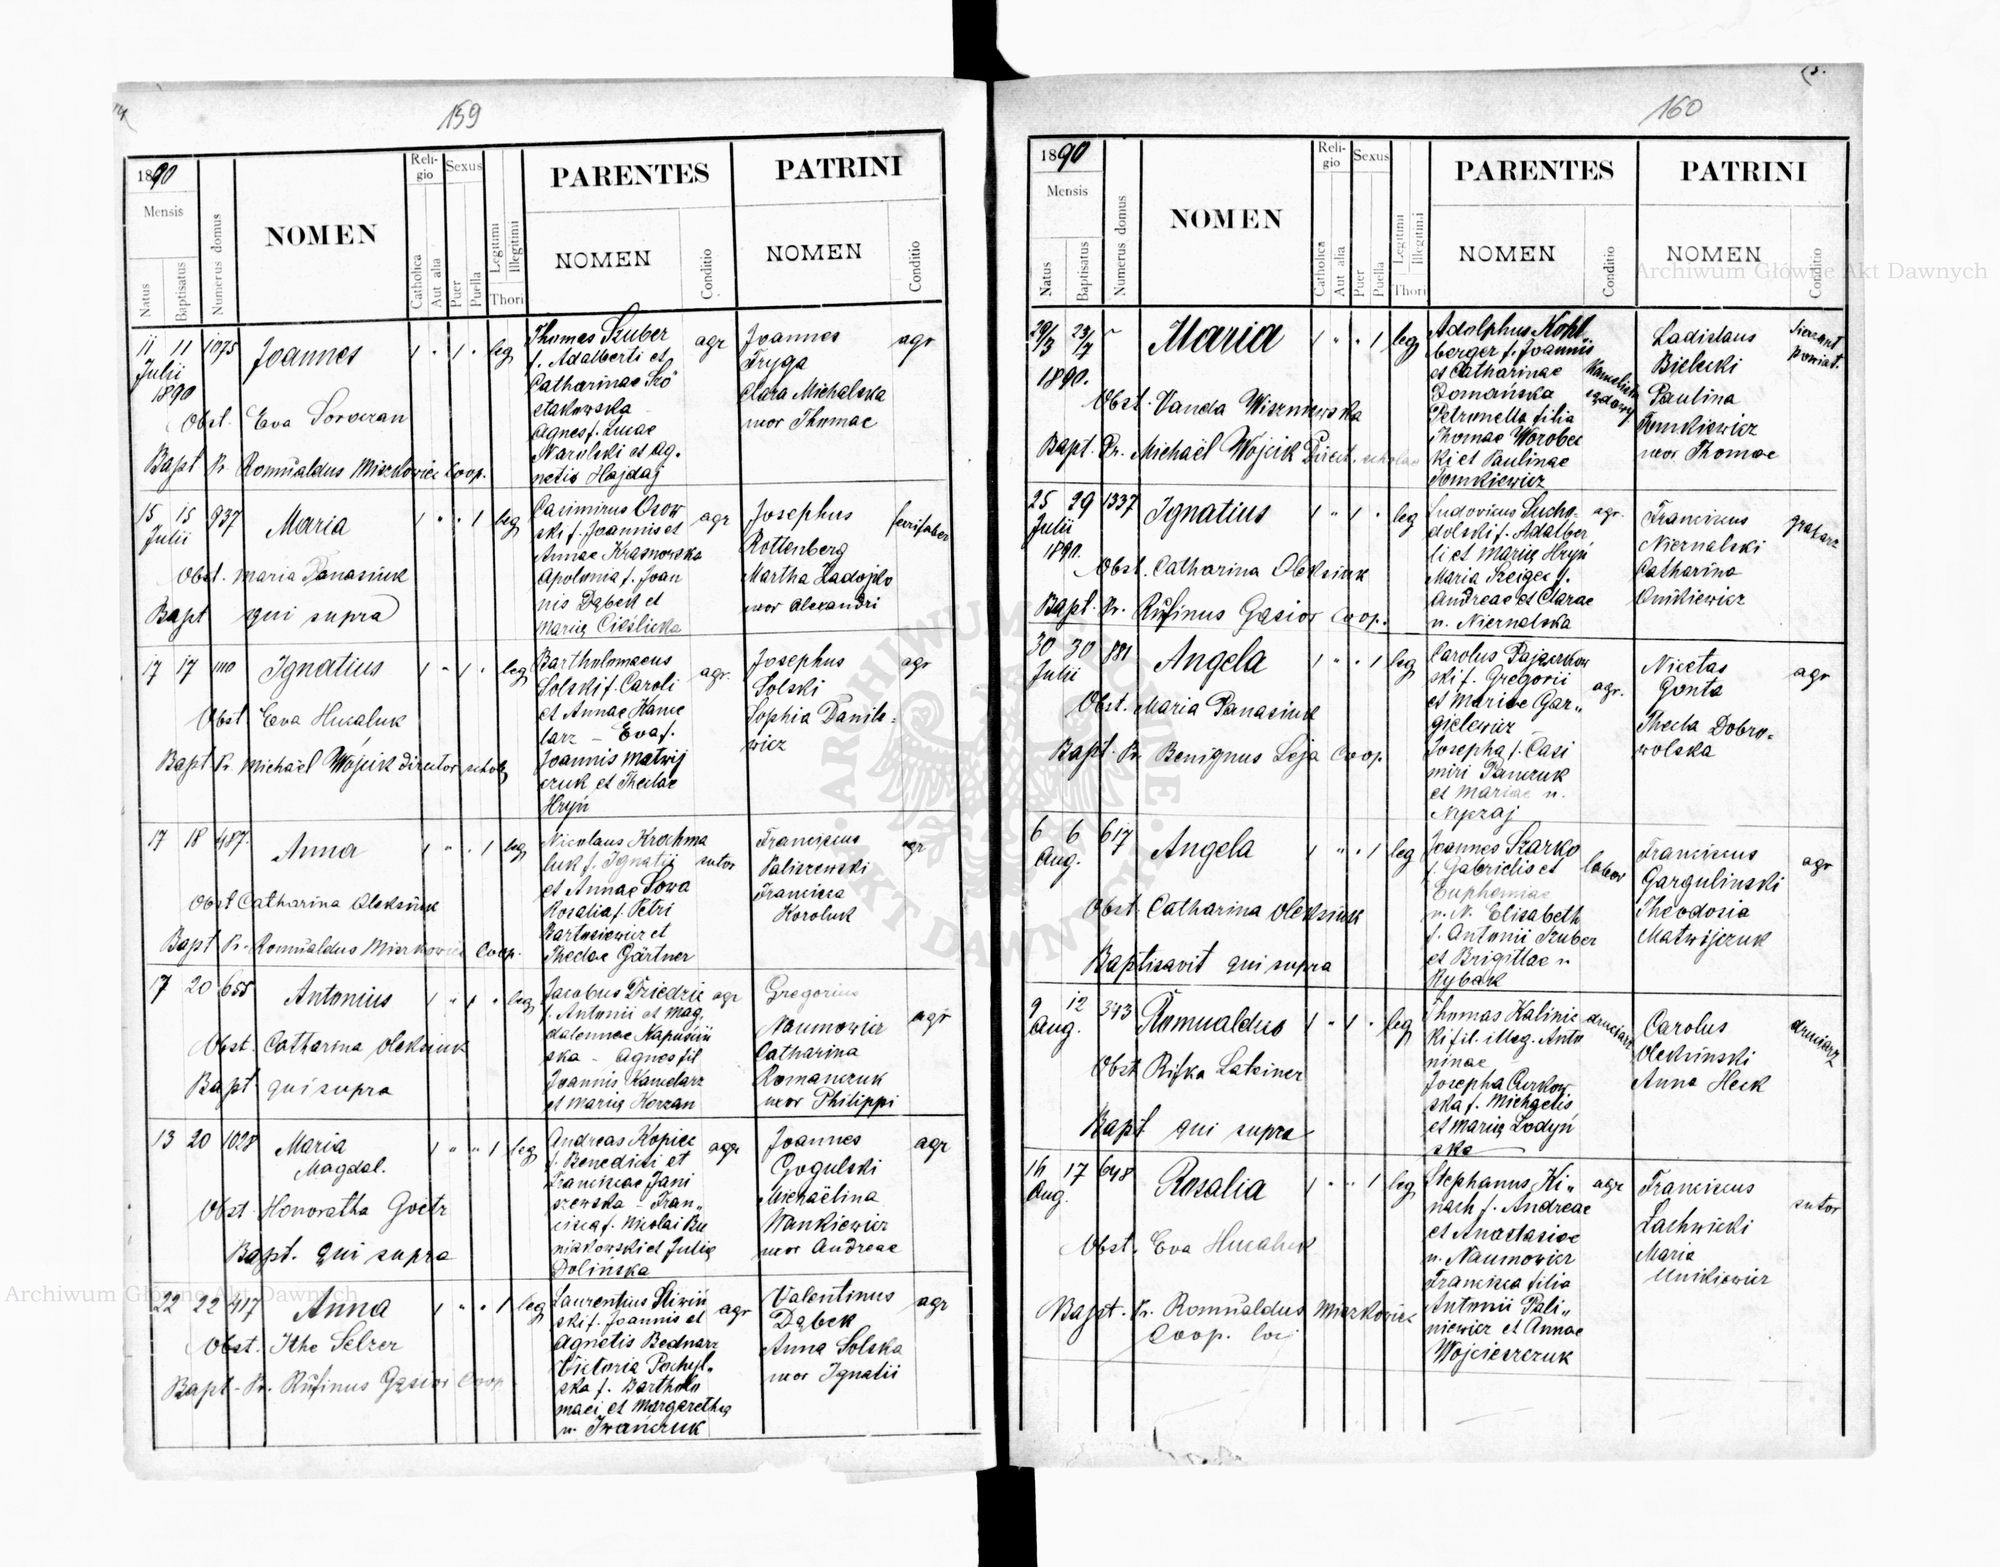 159
1890
Mensis
Natus
Baptisatus
Numerus domus
NOMEN
Religio
Catholica
Aut alia
Sexus
Puer
Puella
Legitimi
Illegitimi
Thori
PARENTES
NOMEN
Conditio
PATRINI
NOMEN
Conditio
11 11 1075 Joannes 1 " 1 . leg
Julii
1890
Obst. Eva
Bapt Pr. Romualdus Miszkowicz Coop.
Thomas Szuber
f. Adalberti et
Catharinae
Agnes f. Lucae
Narolski et Ag-
netis Hajdaj
agr
Joannes
Fryga
Clara Michalska
uxor Thomae
agr
15 15 937 Maria 1 " " 1 leg
Julii
Obst. Maria Panasiuk
Bapt qui supra
Casimirus Osow
ski f. Joannis et
Annae Krasnowska
Apolonia f. Joan
nis Dąbek et
Marię Cieślicka
agr
Josephus
Rottenberg
Martha
uxor Alexandri
ferrifaber
17 17 1110 Ignatius 1 " 1 . leg
Obst Eva Hucaluk
Bapt Pr. Michaël Wójcik director scholę
Bartholomaeus
Solski f. Caroli
et Annae Kance
larz – Eva f.
Joannis Matwij
czuk et Theclae
Hryń
agr.
Josephus
Solski
Sophia Danile-
wicz
agr
17 18 487. Anna 1 " . 1 leg
Obst Catharina Oleksiuk
Bapt Pr. Romualdus Miszkowicz Coop.
Nicolaus Krochma
luk f. Ignatii
et Annae Sowa
Rosalia f. Petri
Bartosiewicz et
Theclae Gärtner
sutor
Franciscus
Paliszewski
Francisca
Koroluk
agr
17 20 655 Antonius 1 " 1 . leg
Obst. Catharina Oleksiuk
Bapt qui supra
Jacobus Dziedzic
f. Antonii et Mag.
dalennae Kapuściń
ska – Agnes fil
Joannis Kancelarz
et Marię Korzan
agr
Gregorius
Naumowicz
Catharina
Romanczuk
uxor Philippi
agr
13 20 1028 Maria 1 " " 1 leg
Magdal.
Obst Honoratha Goetz
Bapt. qui supra
Andreas Kopiec
f. Benedicti et
Franciscae Jani
szewska – Fran„
cisca f. Nicolai
et Julię
Dolińska
agr
Joannes
Gogulski
Michaëlina
Wankiewicz
uxor Andreae
agr
22 22 417 Anna 1 " " 1 leg
Obst. Ithe Selzer
Bapt. Pr. Rufinus Gąsior Coop
Laurentius Śliwiń
ski f. Joannis et
Agnetis Bednarz
Victoria Pochyl„
ska f. Bartholo
maei et Margarethę
n. Iwańczuk
agr
Valentinus
Dąbek
Anna Solska
uxor Ignatii
agr
160
1890
Mensis
Natus
Baptisatus
Numerus domus
NOMEN
Religio
Catholica
Aut alia
Sexus
Puer
Puella
Legitimi
Illegitimi
Thori
PARENTES
NOMEN
Conditio
PATRINI
NOMEN
Conditio
29/3 23/7 Maria 1 " . 1 leg
1890.
Obst. Vanda Wiszniewska
Bapt. Pr. Michaël Wójcik Direct. scholae
Adolphus Kohl
berger f. Joannis
et Catharinae
Domańska
Petronella filia
Thomae Worobec
ki et Paulinae
Tomkiewicz
Ladislaus
Bielecki
Paulina
Tomkiewicz
uxor Thomae
25 29 1337 Ignatius 1 " 1 . leg
Julii
1890.
Obst. Catharina Oleksiuk
Bapt. Pr. Rufinus Gąsior Coop.
Ludovicus Sucho-
dolski f. Adalber
ti et Marię Hryń
Maria Szeiger f.
Andreae et Clarae
n. Niernalska
agr.
Franciscus
Niernalski
Catharina
Unikiewicz
30 30 881 Angela 1 " . 1 leg
Julii
Obst. Maria Panasiuk
Bapt. Pr. Benignus Leja Coop.
Carolus Pajączkow
ski f. Gregorii
et Mariae Gar„
gielewicz
Josepha f. Casi
miri Panczuk
et Mariae n.
agr.
Nicetas
Gonta
Thecla Dobro-
wolska
agr
6 6 617 Angela 1 " . 1 leg
Aug.
Obst. Catharina Oleksiuk
Baptisavit qui supra
Joannes Szarko
f. Gabrielis et
Euphemiae
n. N. Elisabeth
f. Antonii Szuber
et Brigittae n
Rybak
labor
Franciscus
Gargulinski
Theodosia
Matwijczuk
agr
9 12 343 Romualdus 1 " 1 . leg
Aug.
Obst Rifka Lateiner
Bapt qui supra
Thomas Kalinic
ki fil. illeg. Anto
ninae
Josepha Curkow
ska f. Michaelis
et Marię Lodyń
ska
druciarz
Carolus
Oleksinski
Anna Heck
druciarz
16 17 648 Rosalia 1 " " 1 leg
Aug.
Obst. Eva Hucaluk
Bapt. Pr. Romualdus Miszkowicz
Coop. loci
Stephanus Ki„
nach f. Andreae
et Anastasiae
n. Naumowicz
Francisca filia
Antonii Pali„
niewicz et Annae
Wojcieszczuk
agr
Franciscus
Lachwicki
Maria
Unikiewicz
sutor
Archiwum Główne Akt Dawnych
Archiwum Główne Akt Dawnych
ARCHIWUM GŁÓWNE · AKT DAWNYCH ·